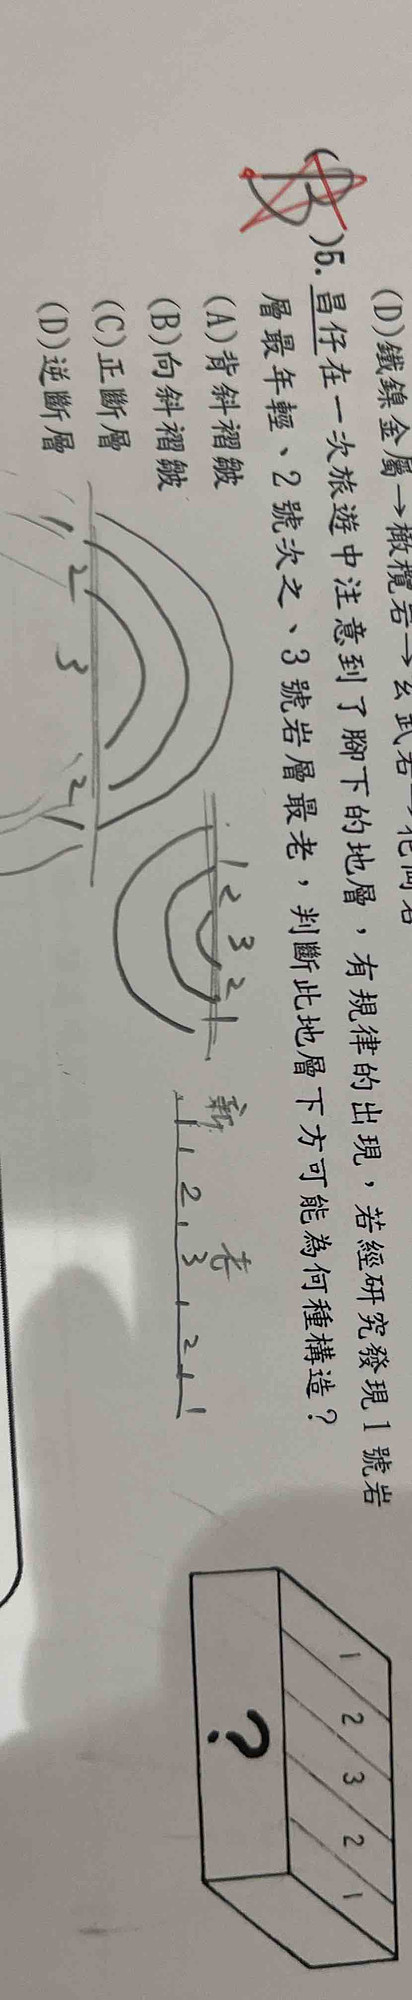 (D)鐵鎳金屬→橄欖岩→玄武岩→花崗岩
(B)5. 昌仔在一次旅遊中注意到了腳下的地層，有規律的出現，若經研究發現1號岩
層最年輕、2號次之、3號岩層最老，判斷此地層下方可能為何種構造？
(A)背斜褶皺
(B)向斜褶皺
(C)正斷層
(D)逆斷層
1 2 3 2 1
?
1 2 3 2 1
新 老
1 2 3 2 1
1 2 3 2 1